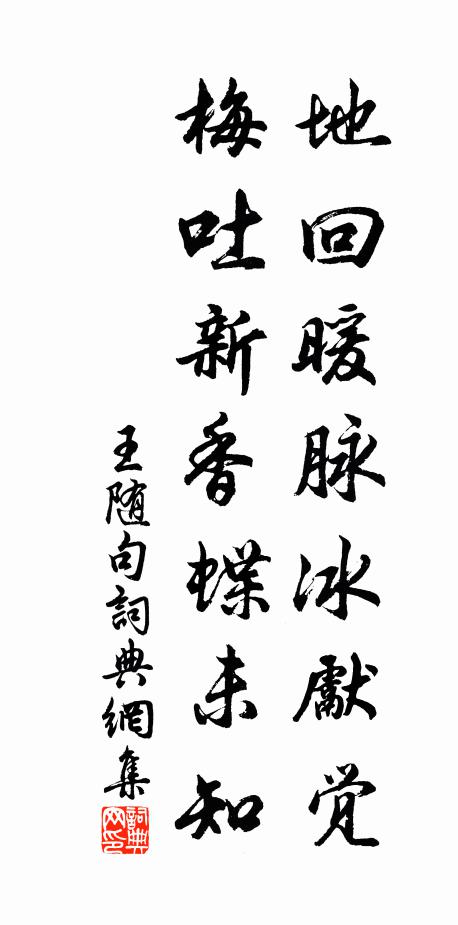 地回暖脉冰獻觉
梅吐新香蝶未知
王随句詞典網集
詞典
网印